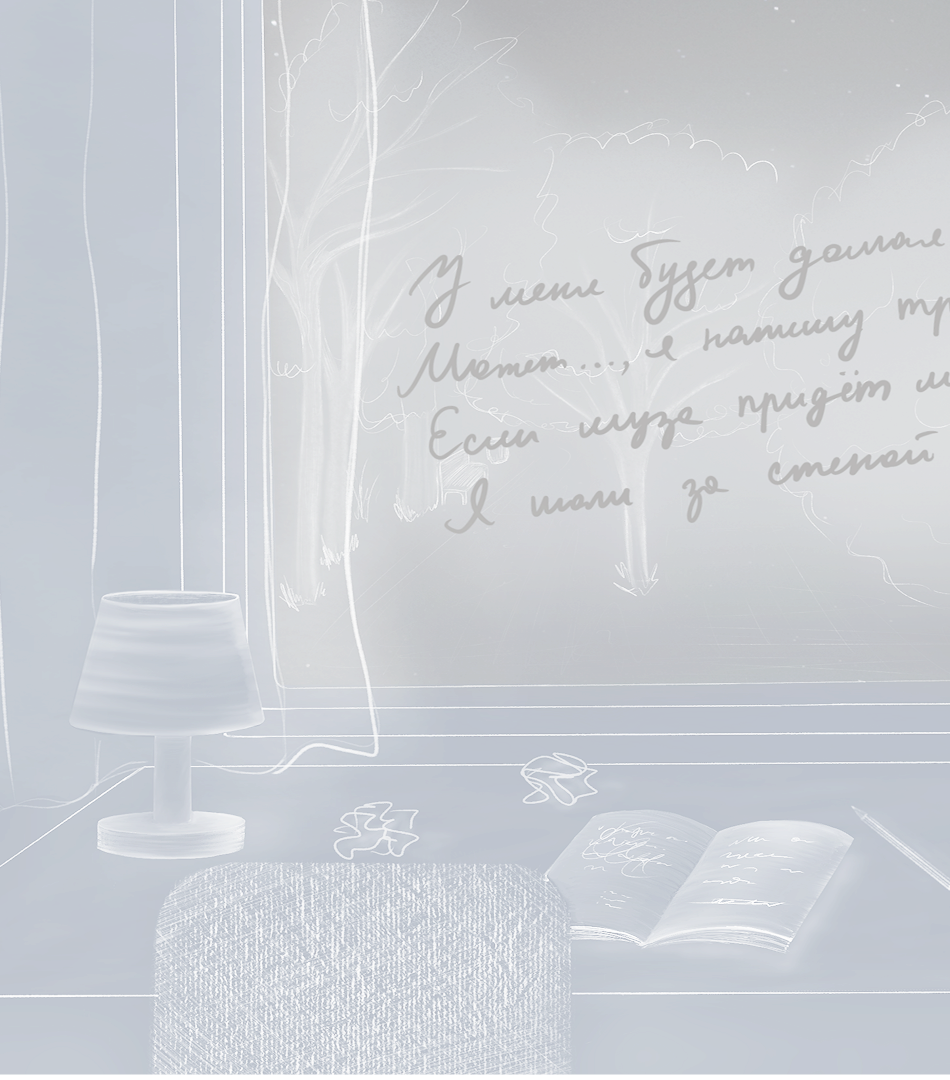 У меня будет домашне
Может..., я напишу тр
Если муза придёт м
Я шали за стеной